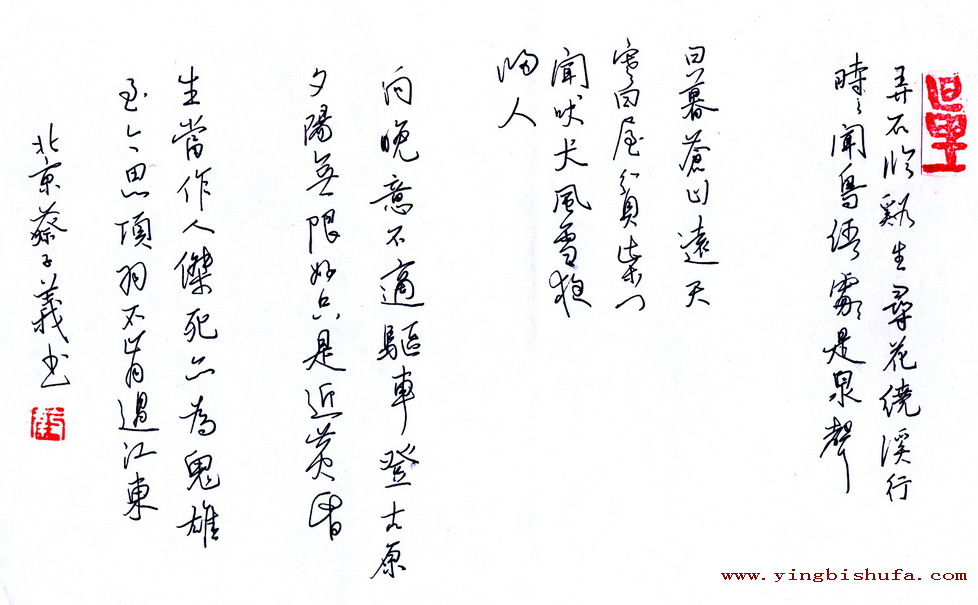 弄石临谿坐尋花繞溪行
時〻聞鳥語處〻是泉聲
日暮蒼山遠天
寒白屋貧柴门
聞吠犬風雪夜
归人
向晚意不適驅車登古原
夕陽無限好只是近黄昏
生當作人傑死亦為鬼雄
至今思項羽不肯過江東
北京蔡子義书
www.yingbishufa.com